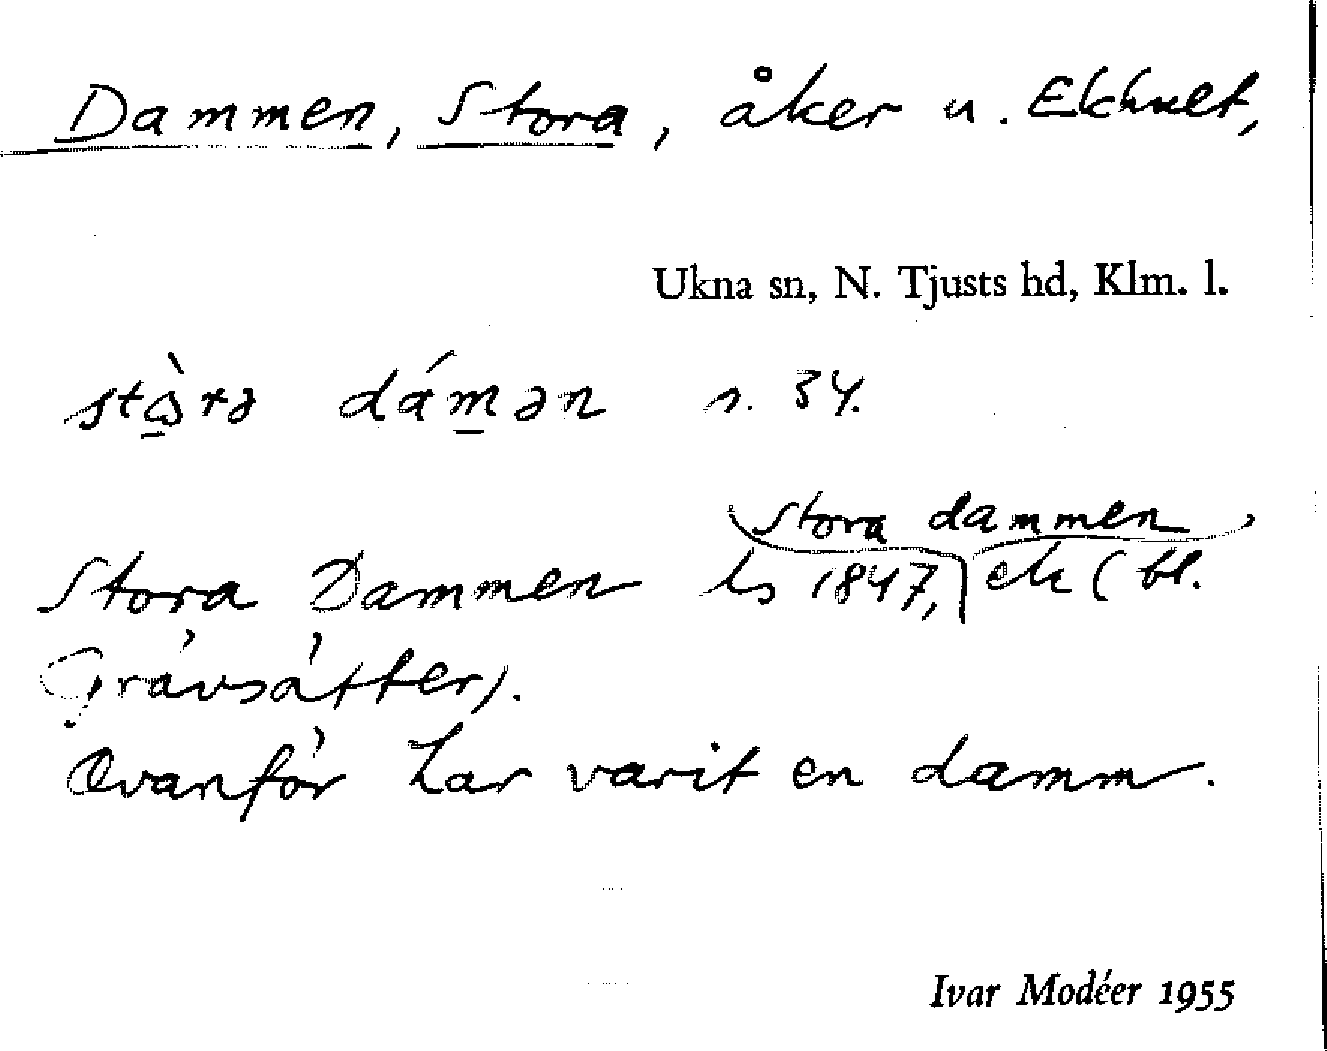 Dammen, Stora, åker u. Ekhult,
Ukna sn, N. Tjusts hd, Klm. l.
stò̱rə dám̱ən s. 34.
stora dammen
Stora Dammen ls 1847, ek (bl.
Grävsätter).
Ovanför har varit en damm.
Ivar Modéer 1955